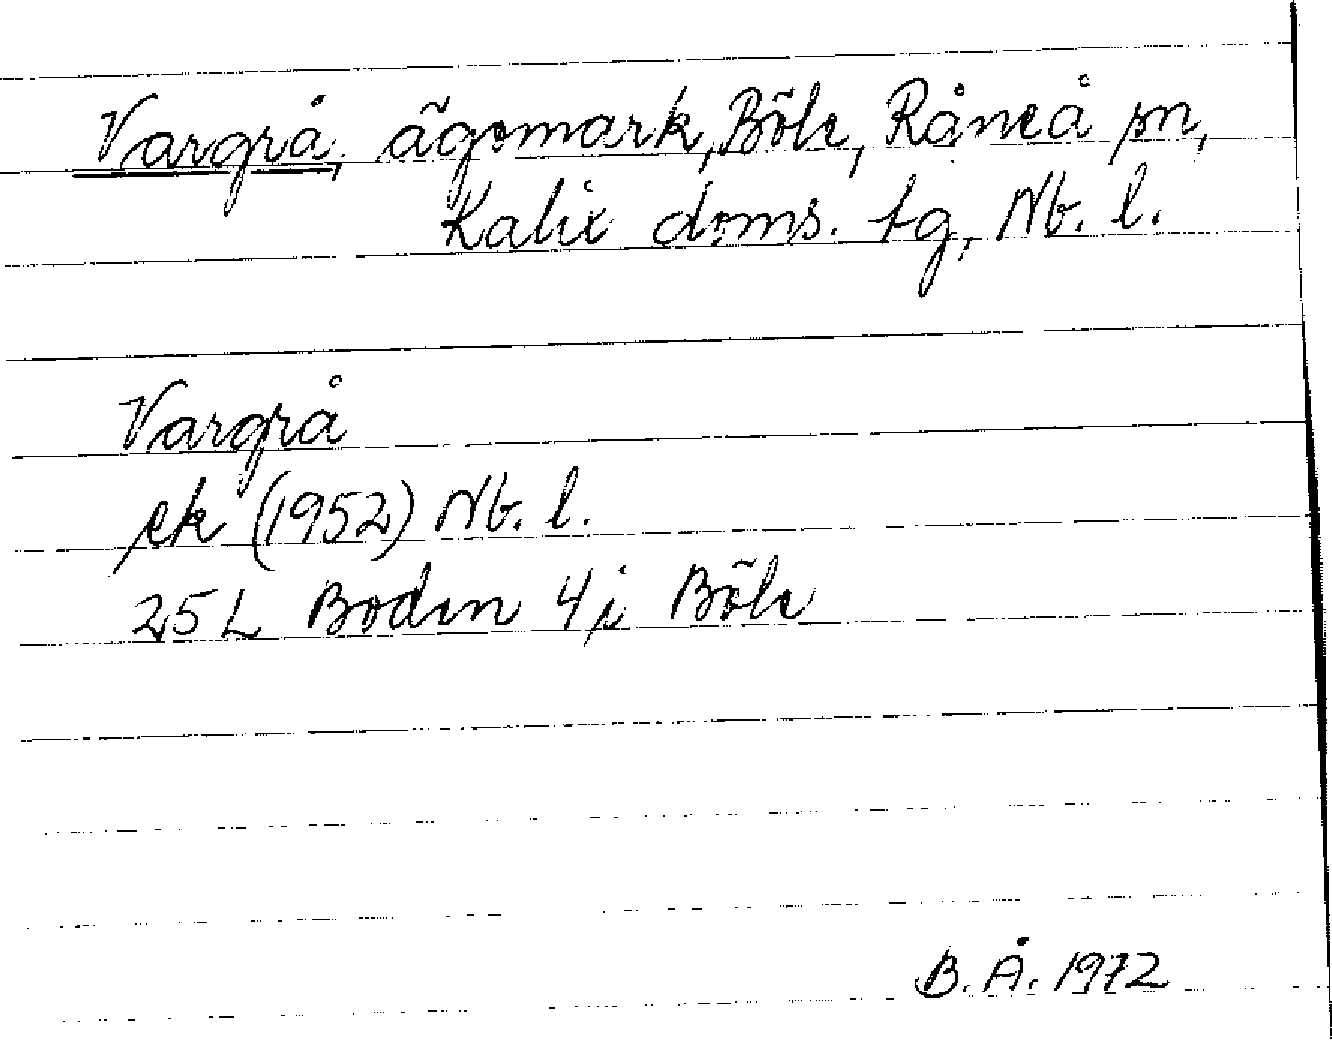 Vargrå, ägomark, Böle, Råneå sn,
Kalix doms. tg, Nb. l.
Vargrå
ek (1952) Nb. l.
25 L Boden 4 i Böle
B. Å. 1972